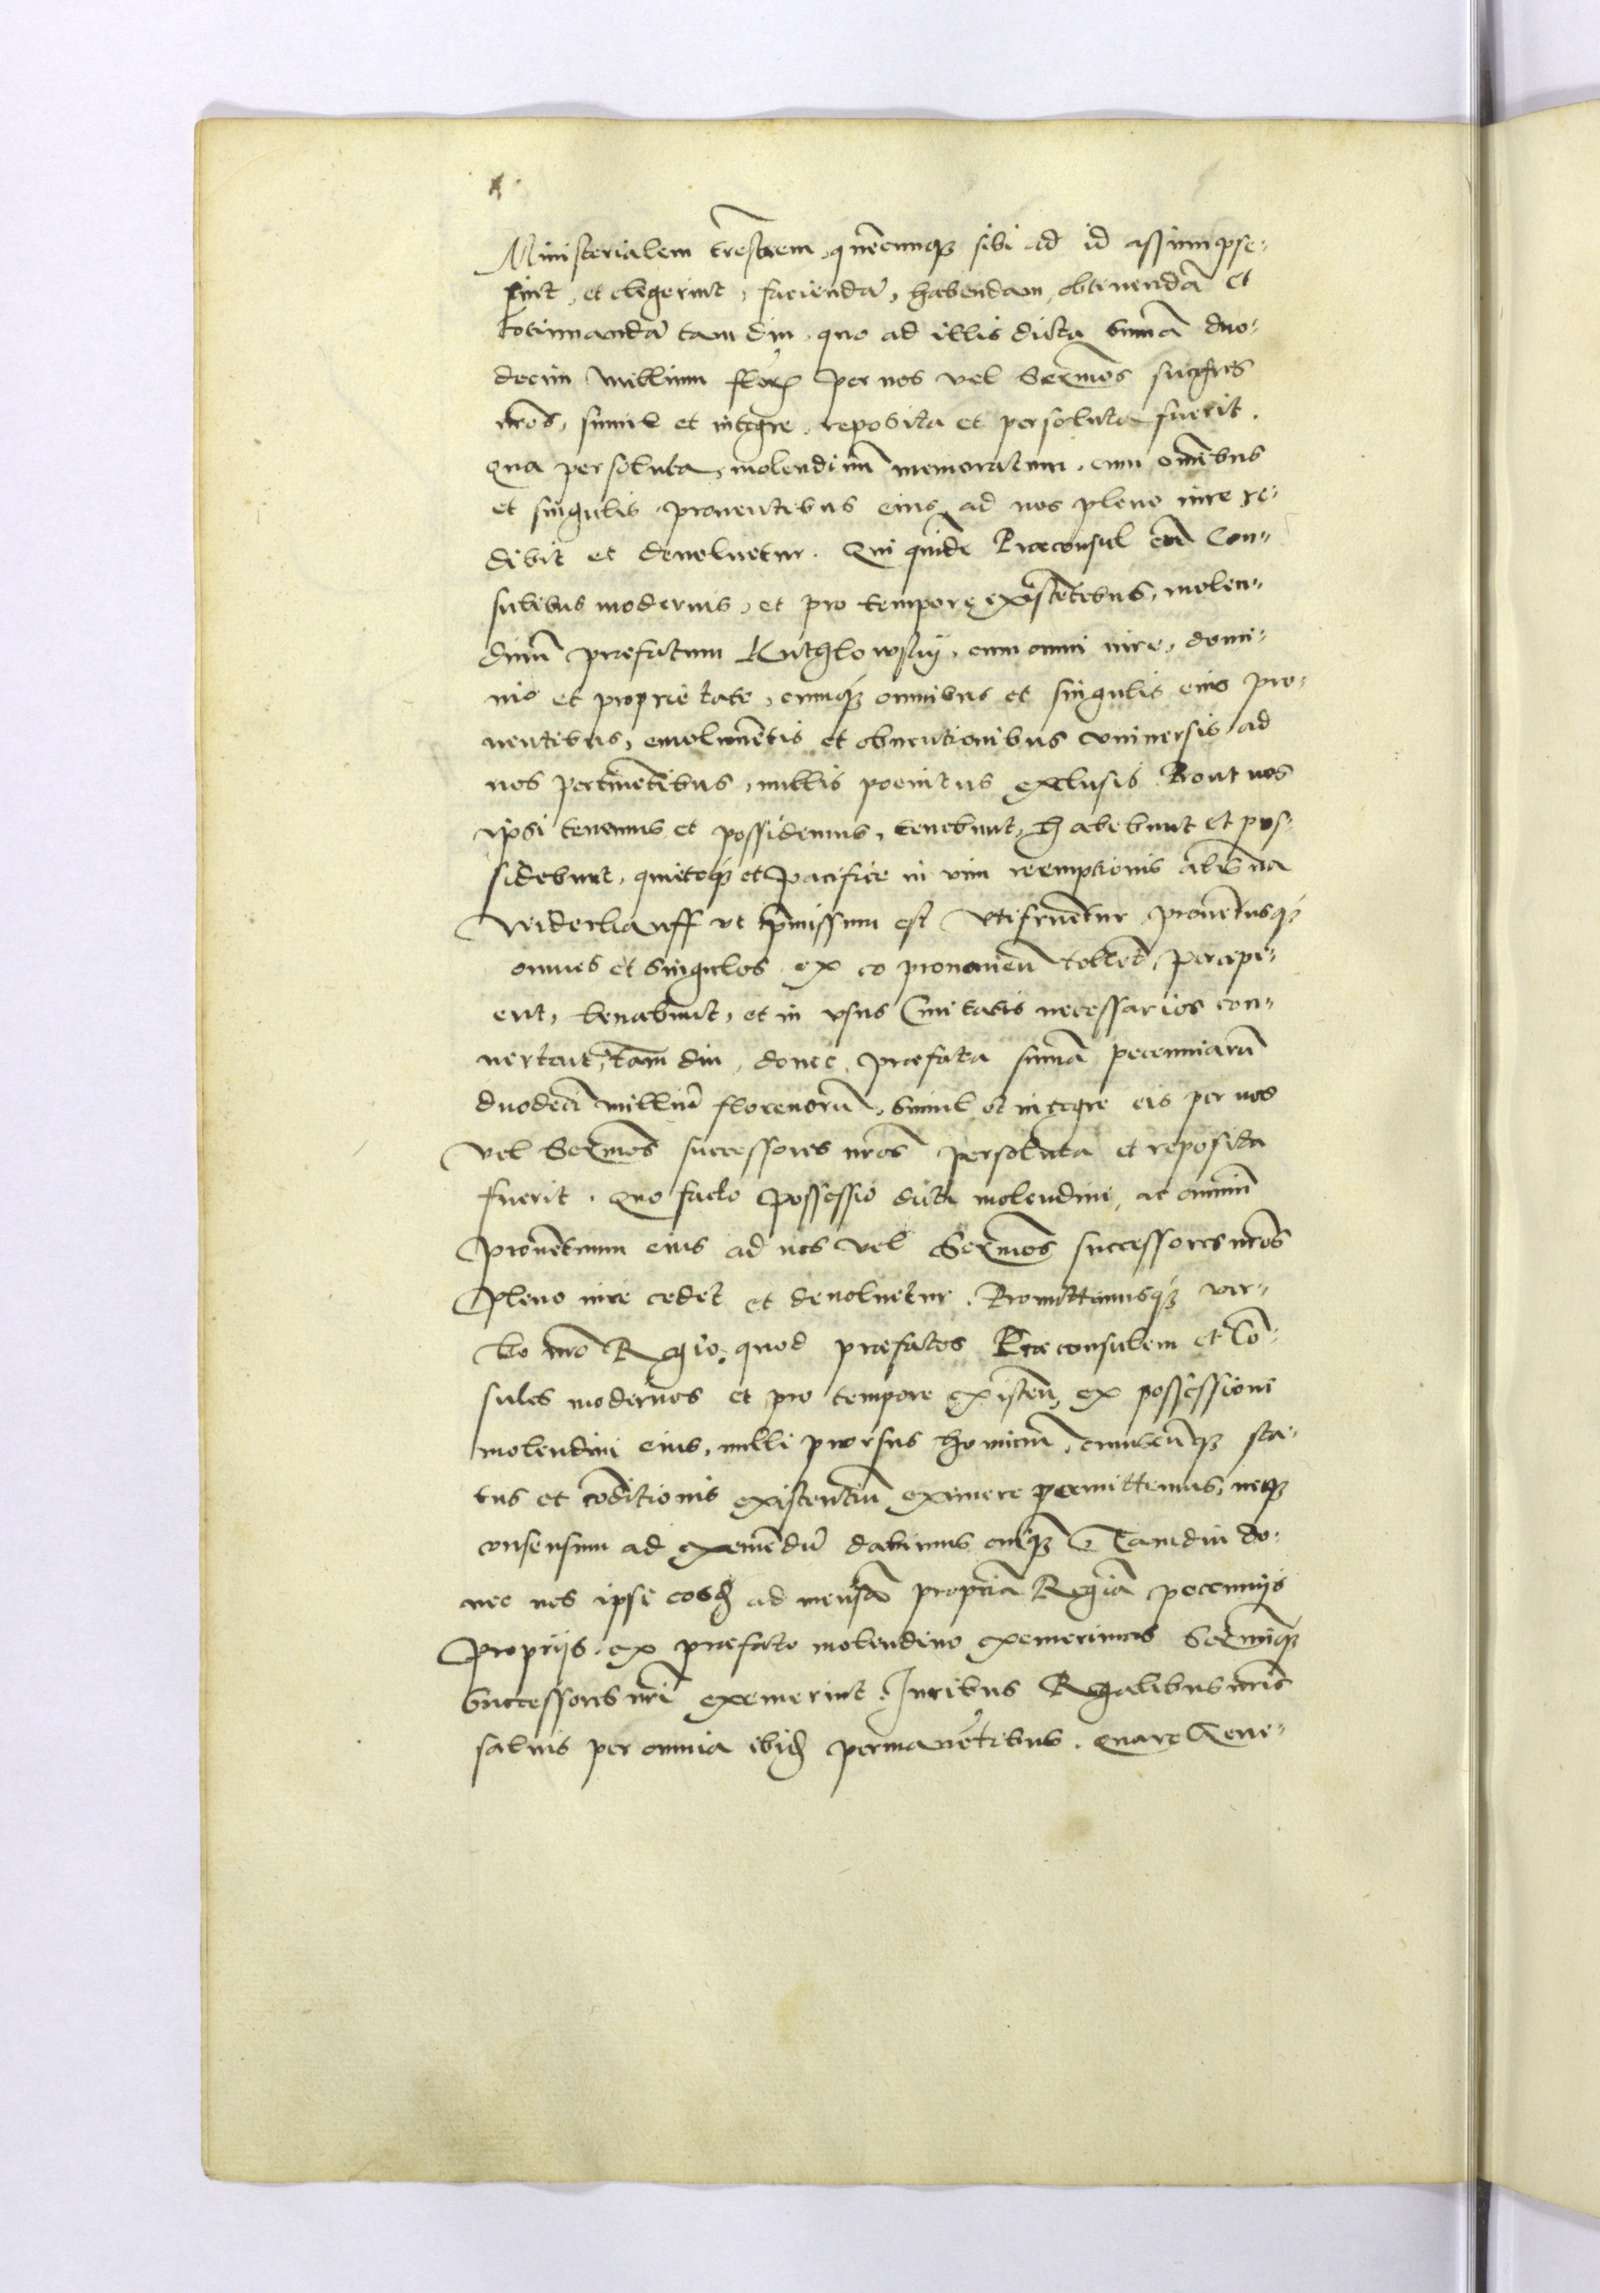 Ministerialem trestrem, quecunqz sibi ad id assumpse-
rint, et elegerint, faciendā, habendam, obtinendā et
continuandā tam diu, quo ad illis dicta summā duo-
decim millium floren per nos vel Sermos succres
nros, simul et integre, reposita et persoluta fuerit.
Qua persoluta, molendinū memoratum, cum omībus
et singulis prouentibus eius, ad nos pleno iure re-
dibit et deuoluetur. Qui quidē Praeconsul cū Con-
sulibus modernis, et pro tempore existētibus, molen-
dinū praefatum Kuthlowskij, cum omni iure, domi-
nio et proprietate, cumqz omnibus et singulis eius pro-
uentibus, emolumētis et obuentionibus vniuersis ad
nos pertinētibus, nullis poenitus exclusis Prout nos
ipsi tenemus et possidemus, tenebunt, habebunt et pos-
sidebunt, quieteqz et pacifice in vim reemptionis alīs na
Widerkauff vt pmissum est vtifruētur, prouētusqz
omnes et singulos ex eo prouenieñ tollēt, percipi-
ent, leuabunt, et in vsus Ciuitatis necessarios con-
uertent, tam diu, donec, praefata summā pecuniarū
duodeci milliū florenorū, simul et integre eis per nos
vel Sermos successores nros persoluta et reposita
fuerit. Quo facto possessio dicti molendini, ac omniū
prouētuum eius ad nos vel Sermos successores nros
pleno iure cedet et deuoluetur. Promittimusqz ver-
bo nro Regio, quod praefatos Praeconsulem et Cō-
sules modernos et pro tempore existeñ, ex possessione
molendini eius, nulli prorsus hominū, cuiuscūqz sta-
tus et coditionis existentiū eximere permittemus, neqz
consensum ad eximēdū dabimus cuiqz Tamdiu do-
nec nos ipsi eosd ad mensā propriā Regiā pecunijs
proprijs, ex praefato molendino exemerimus Sermiqz
successores nri exemerint, Iuribus Regalibus nris
saluis per omnia ibid permanētibus. Quare Gene-